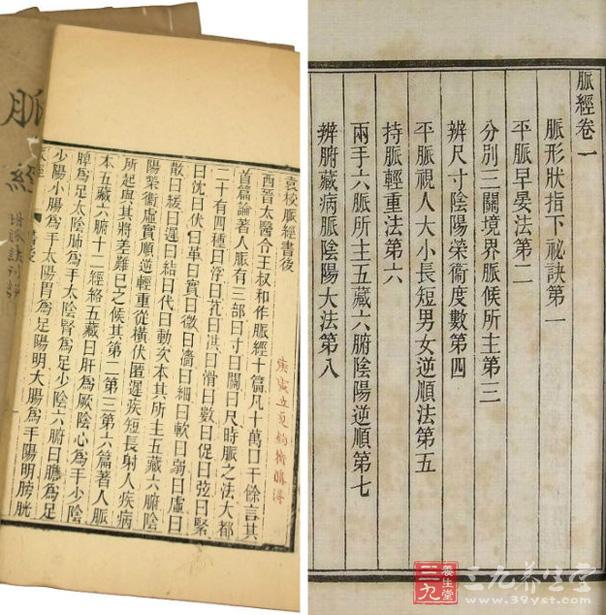 脈經
袁校脈經書後
西晉太醫令王叔和作脈經十篇凡十萬
餘言其
首篇論著人脈有三部曰寸曰關曰尺時脈之法大都
二十有四種曰浮曰芤曰洪曰滑曰數曰促曰弦曰緊
曰沈曰伏曰革曰實曰微曰濇曰細曰軟曰弱曰虛曰
散曰緩曰遲曰結曰代曰動次本其所主五藏六腑陰
陽榮衞虛實順逆輕重從橫伏匿遲疾短長射人疾病
所起與其將差難已之候其第二第三第六篇著人脈
本五藏六腑十二經絡五藏曰肝為厥陰心為手少陰
脾為足太陰肺為手太陰腎為足少陰六腑曰膽為足
少陽小腸為手太陽胃為足陽明大腸為手陽明膀胱
脈經卷一
脈形狀指下祕訣第一
平脈早晏法第二
分別三關境界脈候所主第三
辨尺寸陰陽榮衞度數第四
平脈視人大小長短男女逆順法第五
持脈輕重法第六
兩手六脈所主五藏六腑陰陽逆順第七
辨腑藏病脈陰陽大法第八
三九
養生堂
三九养生堂
www.39yst.com